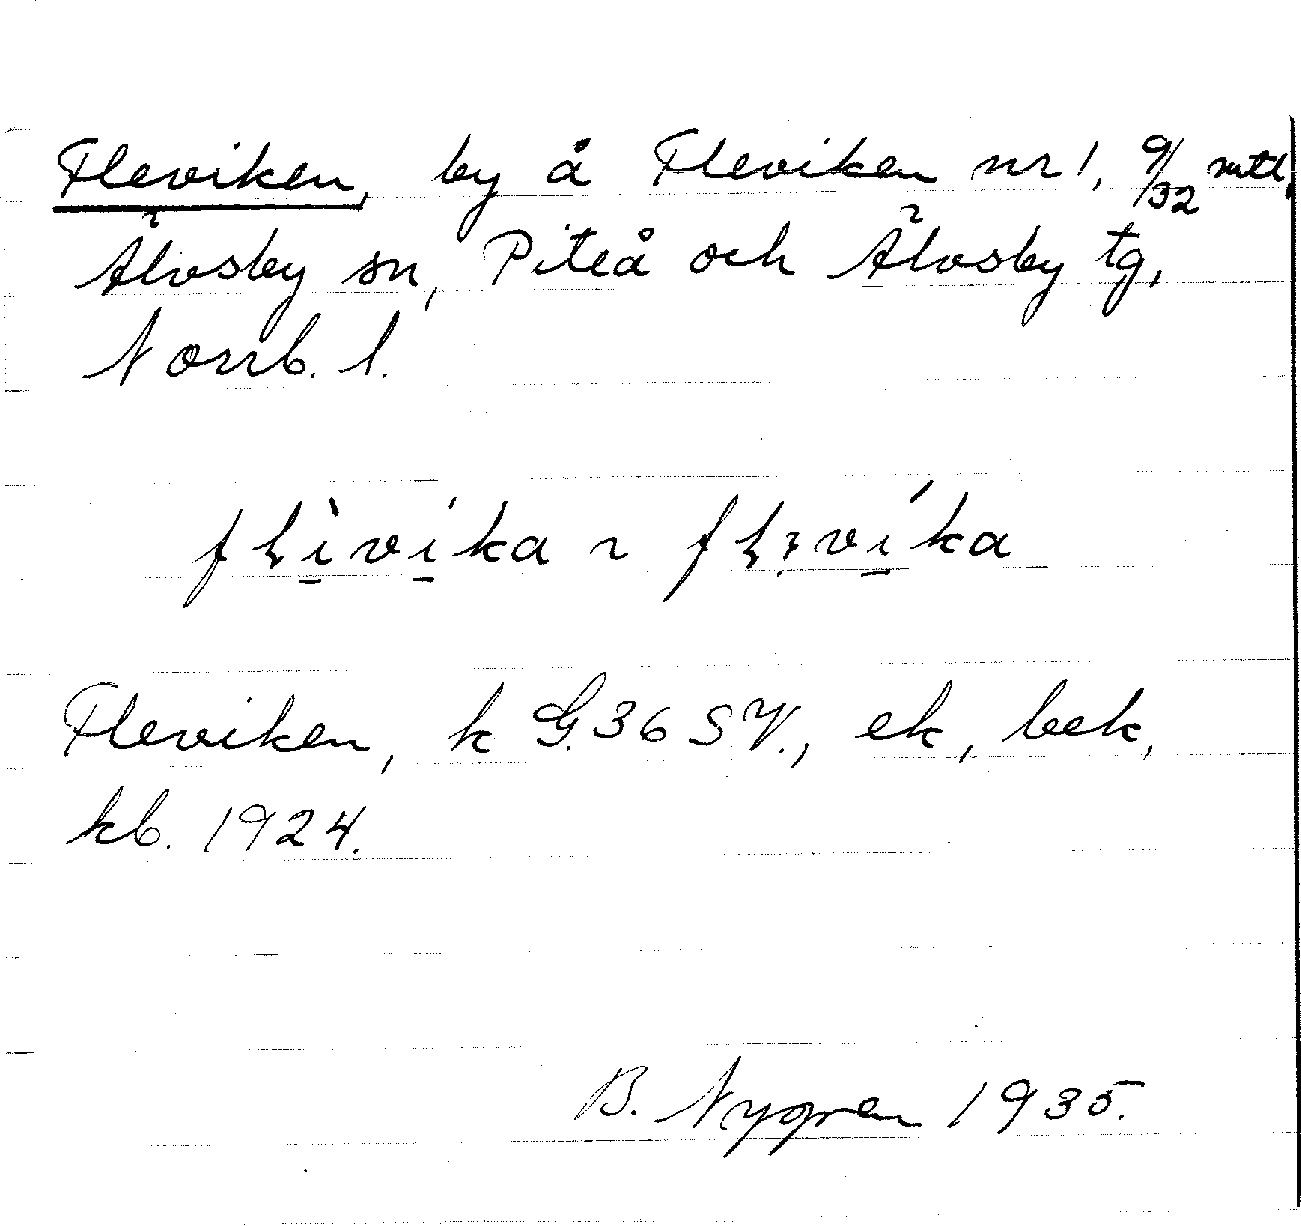 Fleviken, by å Fleviken nr 1, 9/32 mtl,
Älvsby sn, Piteå och Älvsby tg,
Norrb. l.
Fleviken, k G.36 SV., ek, bek,
kb. 1924.
B. Nygren 1935.